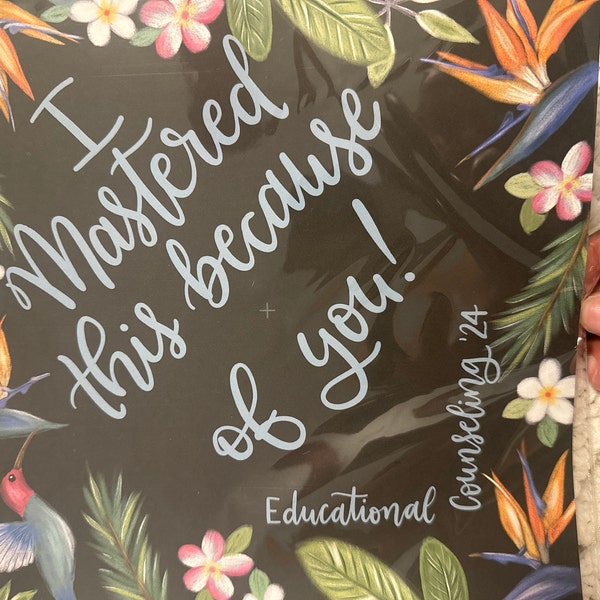 I
Mastered
this because
of you!
Educational
Counseling '24